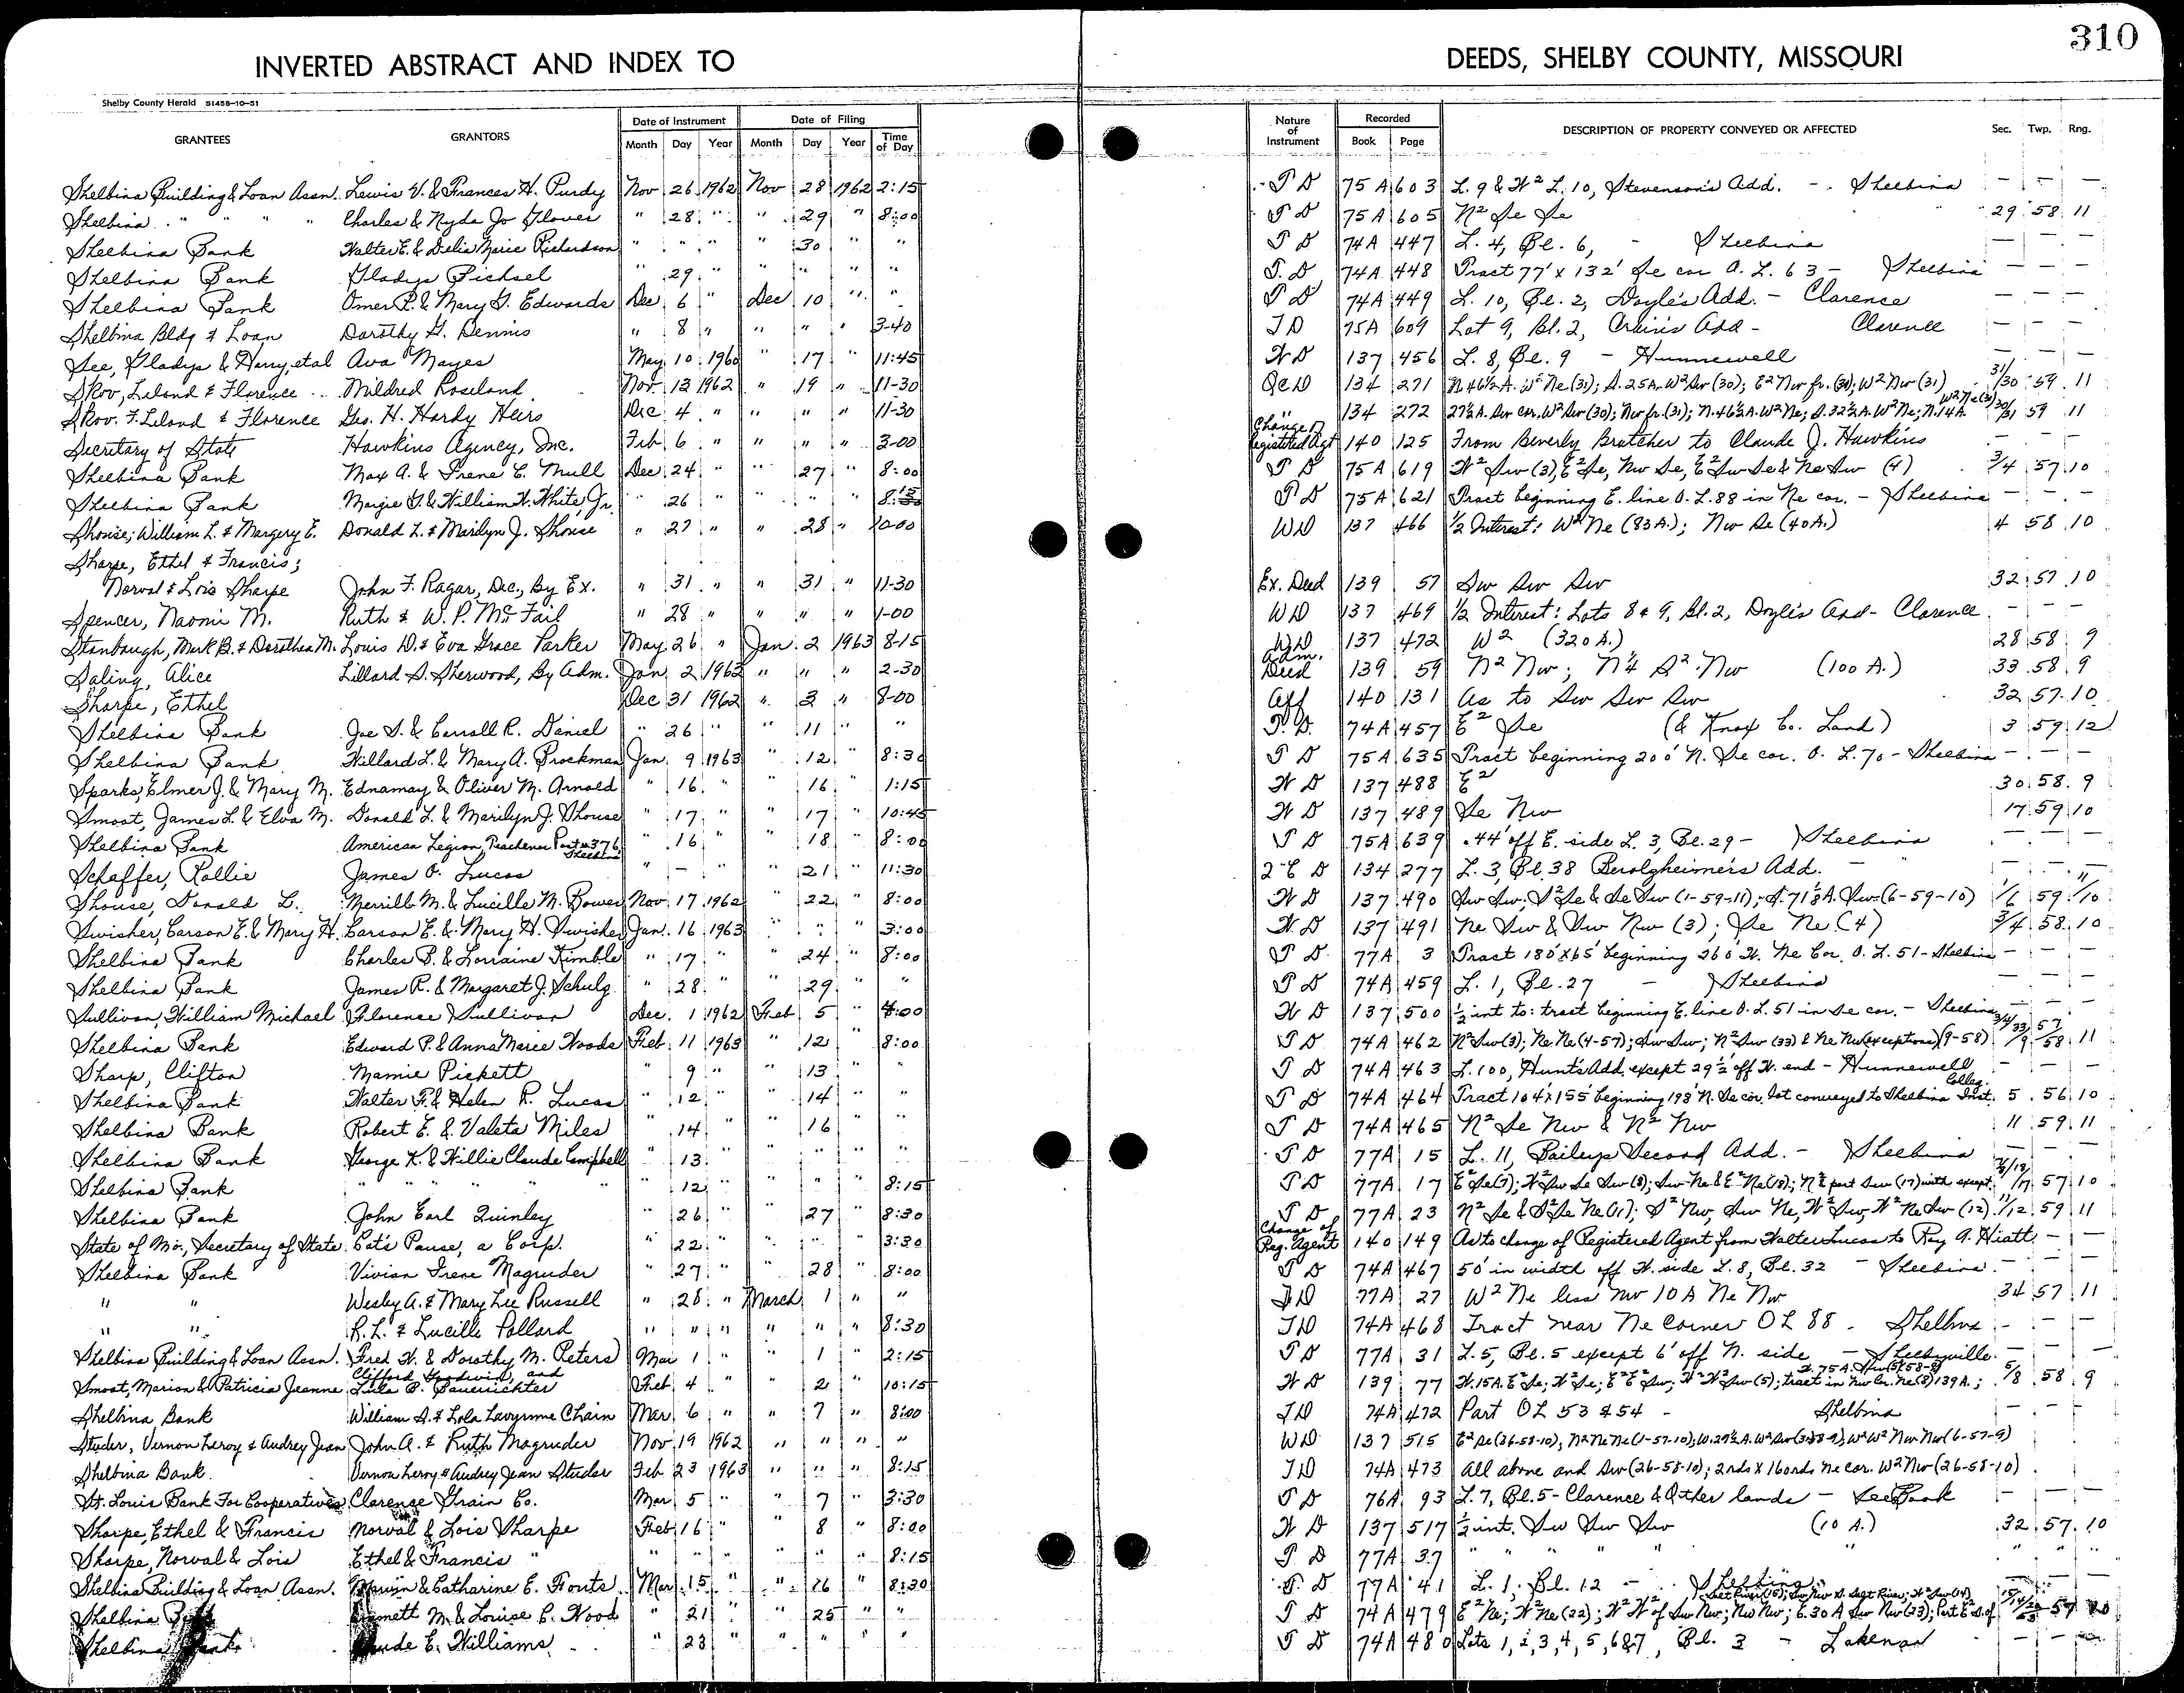 310
INVERTED ABSTRACT AND INDEX TO DEEDS, SHELBY COUNTY, MISSOURI
Shelby County Herald 51458-10-51
GRANTEES GRANTORS Date of Instrument Date of Filing Nature of Instrument Recorded DESCRIPTION OF PROPERTY CONVEYED OR AFFECTED Sec. Twp. Rng.
Month Day Year Month Day Year Time of Day Book Page
Shelbina Building & Loan Assn. Lewis V. & Frances H. Purdy Nov 26 1962 Nov 28 1962 2:15 T D 75A 603 L. 9 & W² L. 10, Stevenson's Add. - Shelbina — — —
Shelbina " " " Charles & Nyda Jo Glover " 28 " " 29 " 8:00 T D 75A 605 N² Se Se 29 58 11
Shelbina Bank Walter E. & Delia Marie Richardson " " " " 30 " " T D 74A 447 L. 4, Bl. 6, - Shelbina — — —
Shelbina Bank Gladys Bichsel " 29 " " " " " T. D 74A 448 Tract 77' x 132' Se cor O. L. 63 - Shelbina — — —
Shelbina Bank Omer P. & Mary G. Edwards Dec 6 " Dec 10 " " T D 74A 449 L. 10, Bl. 2, Doyle's Add. - Clarence — — —
Shelbina Bldg & Loan Dorothy G. Dennis " 8 " " " " 3-40 T D 75A 609 Lot 9, Bl. 2, Crain's Add - Clarence — — —
See, Gladys & Harry, et al Ava Mayes May 10 1960 " 17 " 11:45 W D 137 456 L. 8, Bl. 9 - Hunnewell — — —
Skov, Leland & Florence Mildred Roseland Nov. 13 1962 " 19 " 11-30 Qc D 134 271 N. 46½ A. W² Ne (31); S. 25 A. W² Sw (30); E² Nw fr. (31); W² Nw (31) 31/30 59 11
Skov. F. Leland & Florence Geo. H. Hardy Heirs Dec 4 " " " " 11-30 " 134 272 27½ A. Sw cor. W² Sw (30); Nw fr. (31); N. 46½ A. W² Ne; S. 32½ A. W² Ne; N. 14 A. W² Ne (31) 30/31 59 11
Secretary of State Hawkins Agency, Inc. Feb 6 " " " " 3-00 Change of Registered Agt 140 125 From Beverly Bratcher to Claude J. Hawkins — — —
Shelbina Bank Max A. & Irene E. Mull Dec 24 " " 27 " 8:00 T D 75A 619 W² Sw (3), E² Se, Nw Se, E² Sw Se & Ne Sw (4) 3/4 57 10
Shelbina Bank Margie G. & William H. White, Jr. " 26 " " " " 8:15 T D 75A 621 Tract beginning E. line O. L. 88 in Ne cor. - Shelbina — — —
Shouse, William L. & Margery E. Donald L. & Marilyn J. Shouse " 27 " " 28 " 10:00 WD 137 466 ½ Interest: W² Ne (83 A.); Nw Se (40 A.) 4 58 10
Sharpe, Ethel & Francis;
Norval & Lois Sharpe John F. Ragar, Dec, By Ex. " 31 " " 31 " 11-30 Ex. Deed 139 57 Sw Sw Sw 32 57 10
Spencer, Naomi M. Ruth & W. P. McFail " 28 " " " " 1-00 WD 137 469 ½ Interest: Lots 8 & 9, Bl. 2, Doyle's Add - Clarence — — —
Stanbaugh, Mark B. & Dorothea M. Louis D. & Eva Grace Parker May 26 " Jan. 2 1963 8-15 WD 137 472 W² (320 A.) 28 58 9
Saling, Alice Lillard S. Sherwood, By Adm. Jan 2 1963 " " " 2-30 Adm. Deed 139 59 N² Nw; N¼ S² Nw (100 A.) 33 58 9
Sharpe, Ethel Dec 31 1962 " 3 " 8-00 Aff 140 131 As to Sw Sw Sw 32 57 10
Shelbina Bank Joe S. & Carroll R. Daniel " 26 " " 11 " " T. D. 74A 457 E² Se (& Knox Co. Land) 3 59 12
Shelbina Bank Willard L. & Mary A. Brockman Jan. 9 1963 " 12 " 8:30 T D 75A 635 Tract beginning 200' N. Se cor. O. L. 70 - Shelbina — — —
Sparks, Elmer J. & Mary M. Ednamay & Oliver M. Arnold " 16 " " 16 " 1:15 W D 137 488 E² 30 58 9
Smoot, James L. & Elva M. Donald L. & Marilyn J. Shouse " 17 " " 17 " 10:45 W D 137 489 Se Nw 17 59 10
Shelbina Bank American Legion, Peachener Post #376 Shelbina " 16 " " 18 " 8:00 T D 75A 639 44' off E. side L. 3, Bl. 29 - Shelbina — — —
Schaffer, Rollie James O. Lucas " — " " 21 " 11:30 2-C D 134 277 L. 3, Bl. 38 Berolzheimer's Add. — " — — —
Shouse, Donald L. Merrill M. & Lucille M. Bower Nov 17 1962 " 22 " 8:00 W D 137 490 Sw Sw; S² Se & Se Sw (1-59-11); S. 71½ A. Sw (6-59-10) 1/6 59 11/10
Swisher, Carson E. & Mary H. Carson E. & Mary H. Swisher Jan. 16 1963 " " " 3:00 W D 137 491 Ne Sw & Sw Nw (3); Se Ne (4) 3/4 58 10
Shelbina Bank Charles B. & Lorraine Kimble " 17 " " 24 " 8:00 T D 77A 3 Tract 180' x 65' beginning 260' W. Ne Cor. O. L. 51 - Shelbina — — —
Shelbina Bank James R. & Margaret J. Schulz " 28 " " 29 " " T D 74A 459 L. 1, Bl. 27 - Shelbina — — —
Sullivan, William Michael Florence Sullivan Dec. 1 1962 Feb 5 " 4:00 W D 137 500 ½ int to: tract beginning E. line O. L. 51 in Se cor. - Shelbina — — —
Shelbina Bank Edward P. & Anna Marie Woods Feb 11 1963 " 12 " 8:00 T D 74A 462 N² Sw (3); Ne Ne (4-57); Sw Sw; N² Sw (33) & Ne Nw (exceptions) (9-58) 3/4/33/9 57/58 11
Sharp, Clifton Mamie Pickett " 9 " " 13 " " T D 74A 463 L. 100, Hunt's Add. except 29½' off W. end - Hunnewell — — —
Shelbina Bank Walter F. & Helen R. Lucas " 12 " " 14 " " T D 74A 464 Tract 104' x 155' beginning 198' N. Se cor. lot conveyed to Shelbina Colleg. Inst. 5 56 10
Shelbina Bank Robert E. & Valeta Miles " 14 " " 16 " " T D 74A 465 N² Se Nw & N² Nw 11 59 11
Shelbina Bank George K. & Willie Claude Campbell " 13 " " " " " T D 77A 15 L. 11, Baileys Second Add. - Shelbina — — —
Shelbina Bank " " " " " " 12 " " " " 8:15 T D 77A 17 E² Se (7); W² Sw Se Sw (8); Sw Ne & E² Ne (18); N E part Sw (17) with except. 57 10
Shelbina Bank John Earl Quinley " 26 " " 27 " 8:30 T D 77A 23 N² Se & S² Se Ne (11); S² Nw, Sw Ne, W² Sw, W² Ne Sw (12) 11/12 59 11
State of Mo., Secretary of State Cat's Pause, a Corp. " 22 " " " " 3:30 Change of Reg. Agent 140 149 As to change of Registered Agent from Walter Lucas to Roy A. Hiatt — — —
Shelbina Bank Vivian Irene Magruder " 27 " " 28 " 8:00 T D 74A 467 50' in width off W. side L. 8, Bl. 32 - Shelbina — — —
" " Wesley A. & Mary Lee Russell " 28 " March 1 " " T D 77A 27 W² Ne less Nw 10 A Ne Nw 34 57 11
" " R. L. & Lucille Pollard " " " " " " 8:30 T D 74A 468 Tract near Ne Corner OL 88 - Shelbina — — —
Shelbina Building & Loan Assn. Fred W. & Dorothy M. Peters Mar 1 " " 1 " 2:15 T D 77A 31 L. 5, Bl. 5 except 6' off N. side - Shelbyville — — —
Smoot, Marion & Patricia Jeanne Clifford Goodwin, and Lula B. Bauerrichter Feb 4 " " 2 " 10:15 W D 139 77 W. 15 A. E² Se; W² Se; E² E² Sw; W² W² Sw (5); tract in Nw Cor. Ne (8) 139 A.; 5/8 58 9
Shelbina Bank William A. & Lola Lavyrnne Chain Mar 6 " " 7 " 8:00 T D 74A 472 Part OL 53 & 54 - Shelbina — — —
Studer, Vernon Leroy & Audrey Jean John A. & Ruth Magruder Nov 19 1962 " " " " WD 137 515 E² Se (26-58-10); N² Ne Ne (1-57-10); W. 29½ A. W² Sw (31-58-9); W² W² Nw Nw (6-57-9)
Shelbina Bank Vernon Leroy & Audrey Jean Studer Feb 23 1963 " " " 8:15 T D 74A 473 All above and Sw (26-58-10); 2 rds x 16 ords Ne cor. W² Nw (26-58-10)
St. Louis Bank For Cooperatives Clarence Grain Co. Mar 5 " " 7 " 3:30 T D 76A 93 L. 7, Bl. 5 - Clarence & Other lands - See Book — — —
Sharpe, Ethel & Francis Norval & Lois Sharpe Feb 16 " " 8 " 8:00 W D 137 517 ½ int. Sw Sw Sw (10 A.) 32 57 10
Sharpe, Norval & Lois Ethel & Francis " " " " " " " 8:15 T D 77A 37 " " " " " " " "
Shelbina Building & Loan Assn. Marvin & Catharine E. Fouts Mar 15 " " 16 " 8:30 T D 77A 41 L. 1, Bl. 12 - Shelbina — — —
Shelbina Emmett M. & Louise C. Wood " 21 " " 25 " " T D 74A 479 E² Ne; W² Ne (22); W² W² of Sw Nw; Nw Nw; E. 30 A Sw Nw (23); Part E² S. of 57
Shelbina Bank Claude E. Williams " 23 " " " " " T D 74A 480 Lots 1, 2, 3, 4, 5, 6 & 7, Bl. 3 - Lakenan — — —